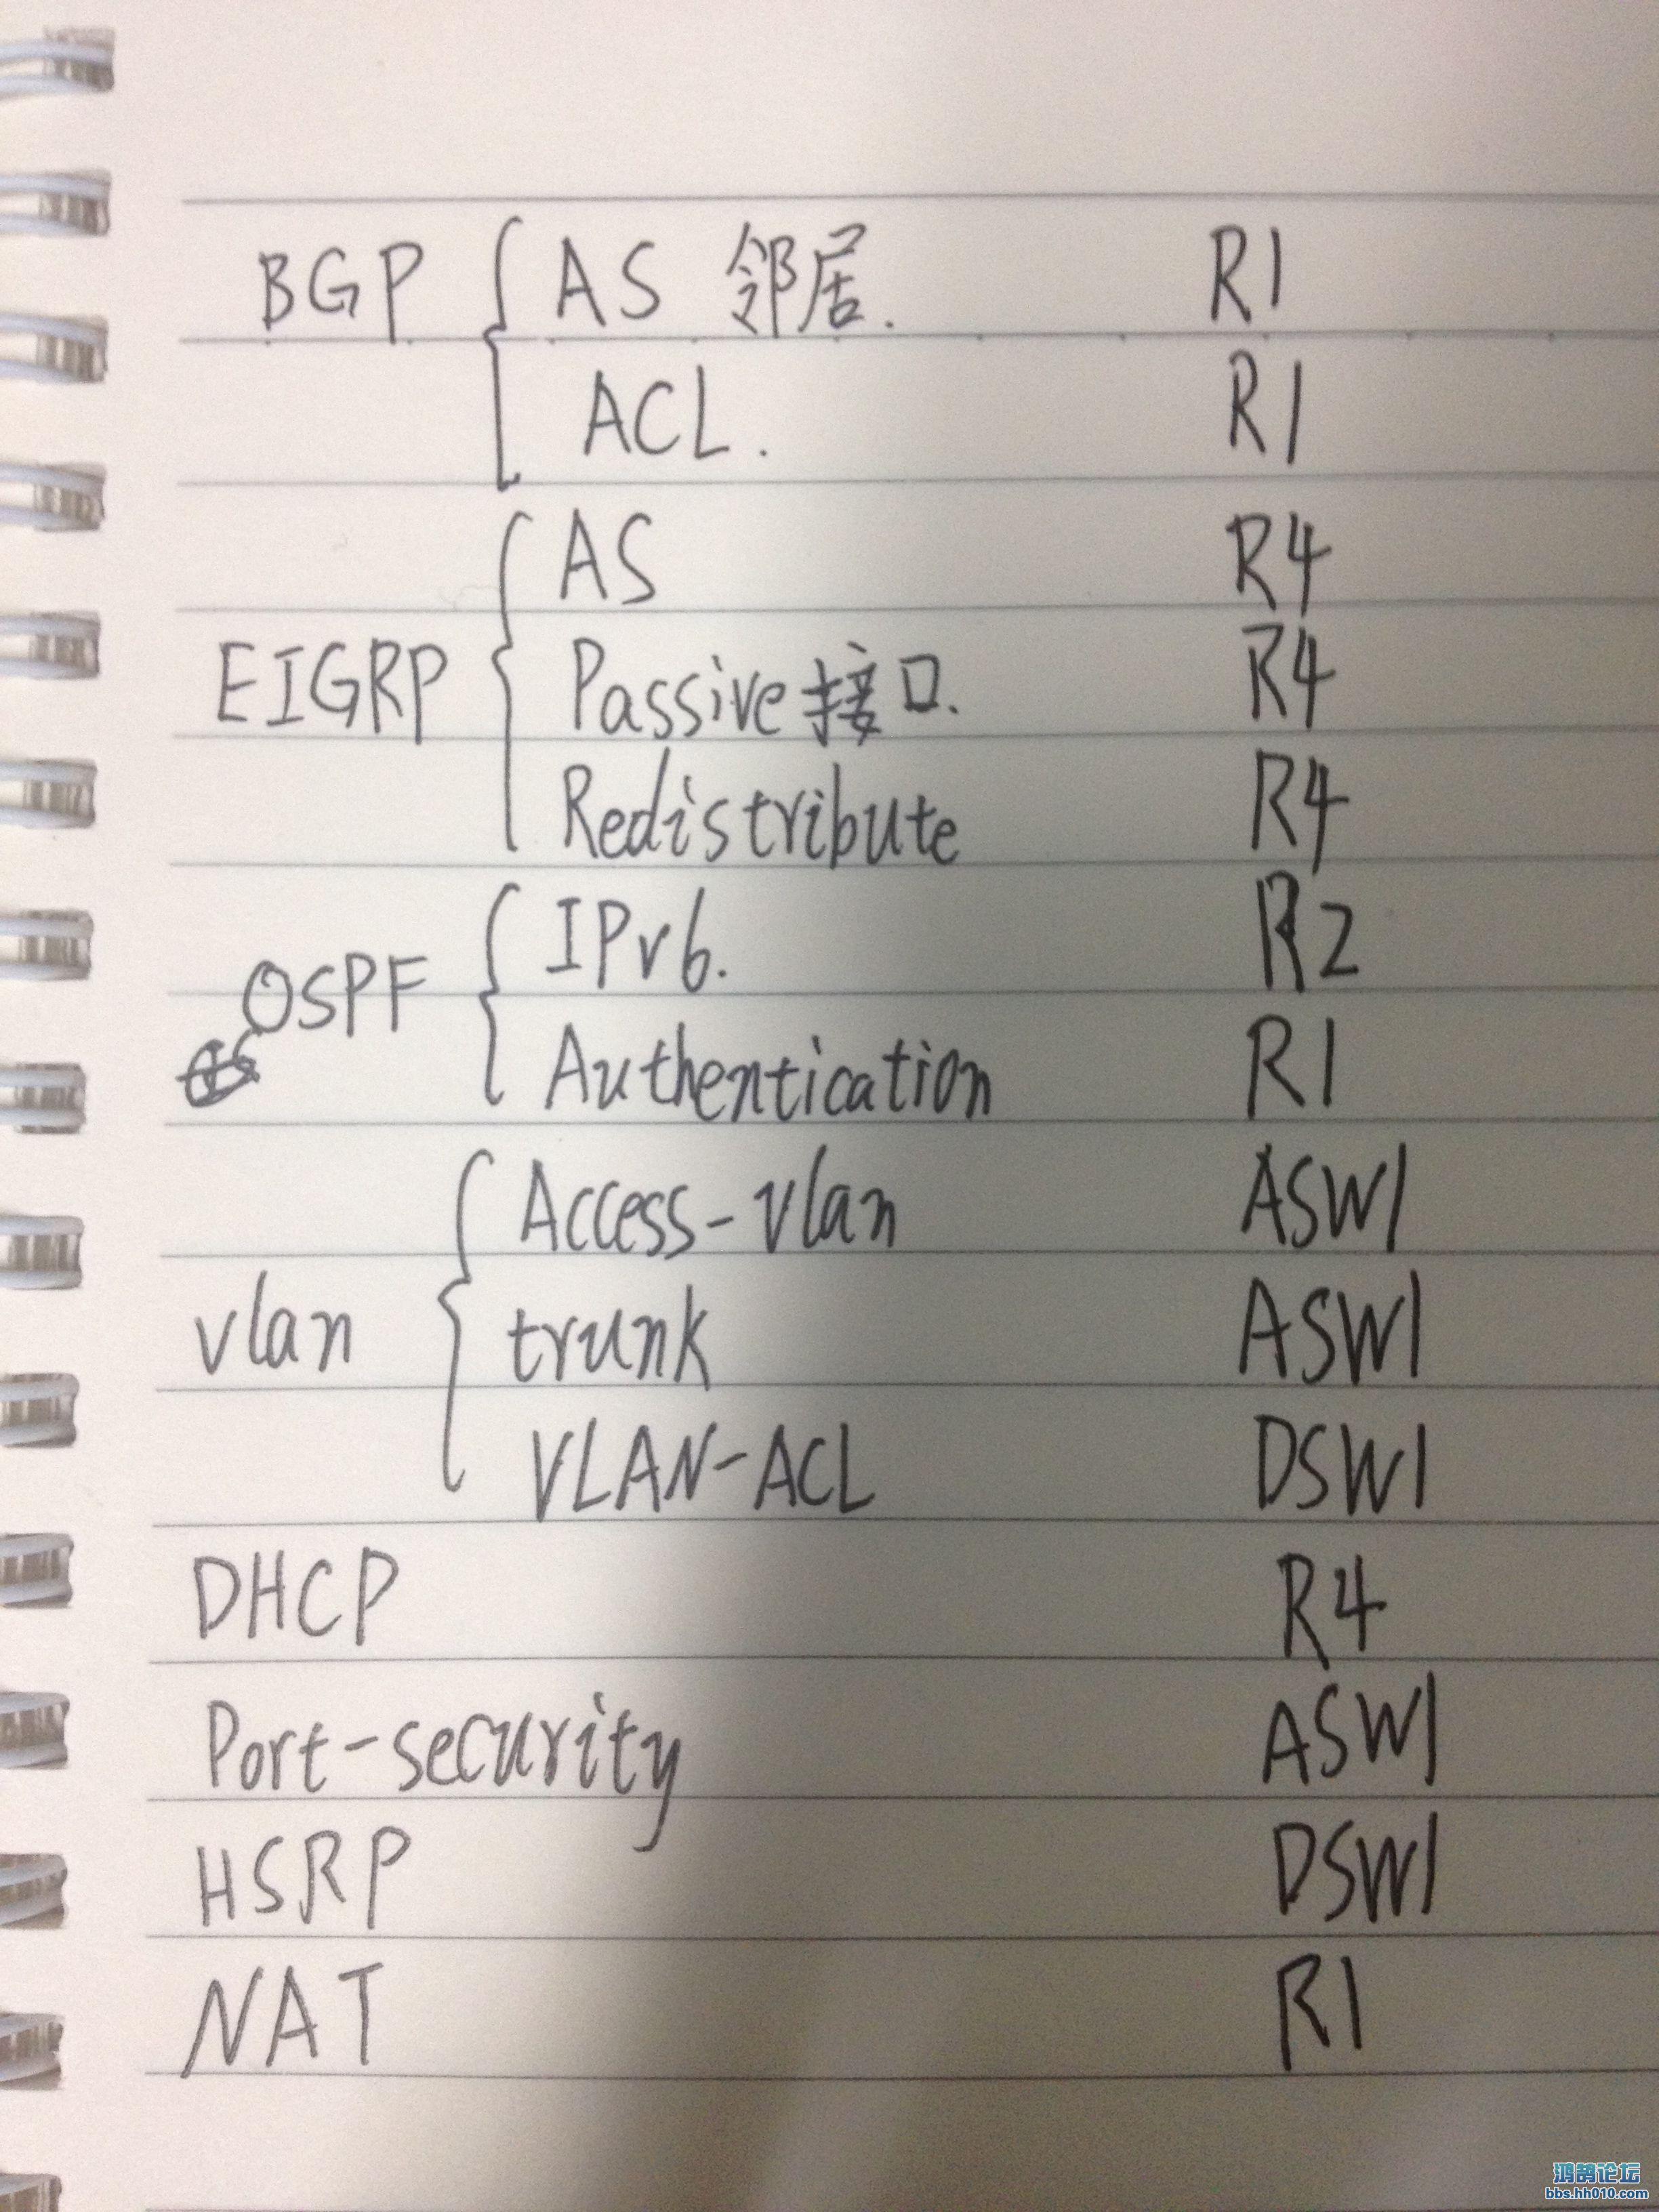 BGP { AS 邻居. R1
ACL. R1
AS R4
EIGRP { Passive 接口. R4
Redistribute R4
IPv6. R2
OSPF {
Authentication R1
Access-vlan ASW1
vlan { trunk ASW1
VLAN-ACL DSW1
DHCP R4
Port-security ASW1
HSRP DSW1
NAT R1
鸿鹄论坛
bbs.hh010.com